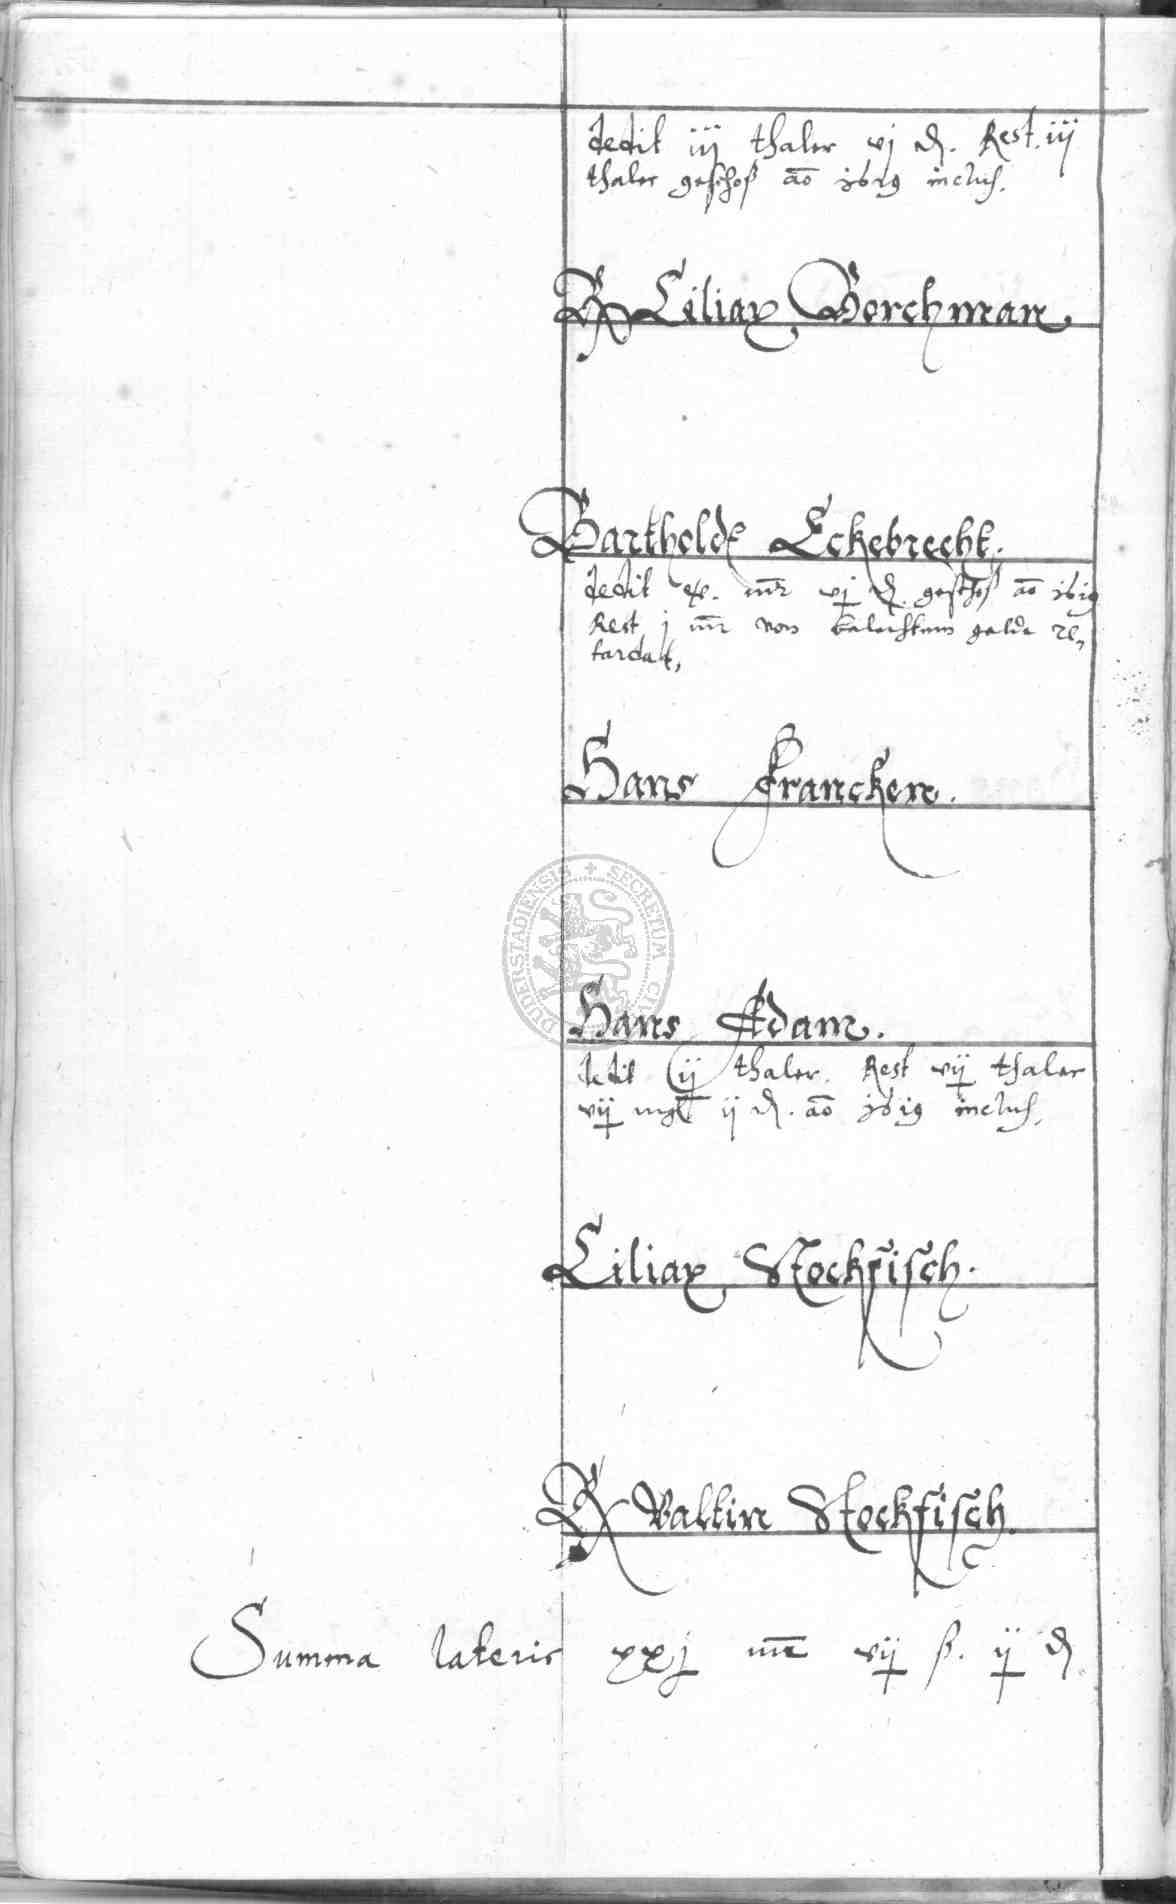 dedit iij thaler vj ₰. Rest. iij
thaler geschoß ao 1619 inclus.
Ciliax Borchman
Bartholdt Eckebrecht.
dedit mr vj ₰. geschoß ao 1619
Rest j mr von gelde re,
tardat,
Hans Francken.
DUDERSTADIENSIS + SECRETUM
Hans Adam.
dedit iij thaler. Rest vij thaler
vij mgl ij ₰. ao 1619 inclus.
Ciliax Stockfisch.
Valtin Stockfisch.
Summa lateris xxj mr vij ß. ij ₰